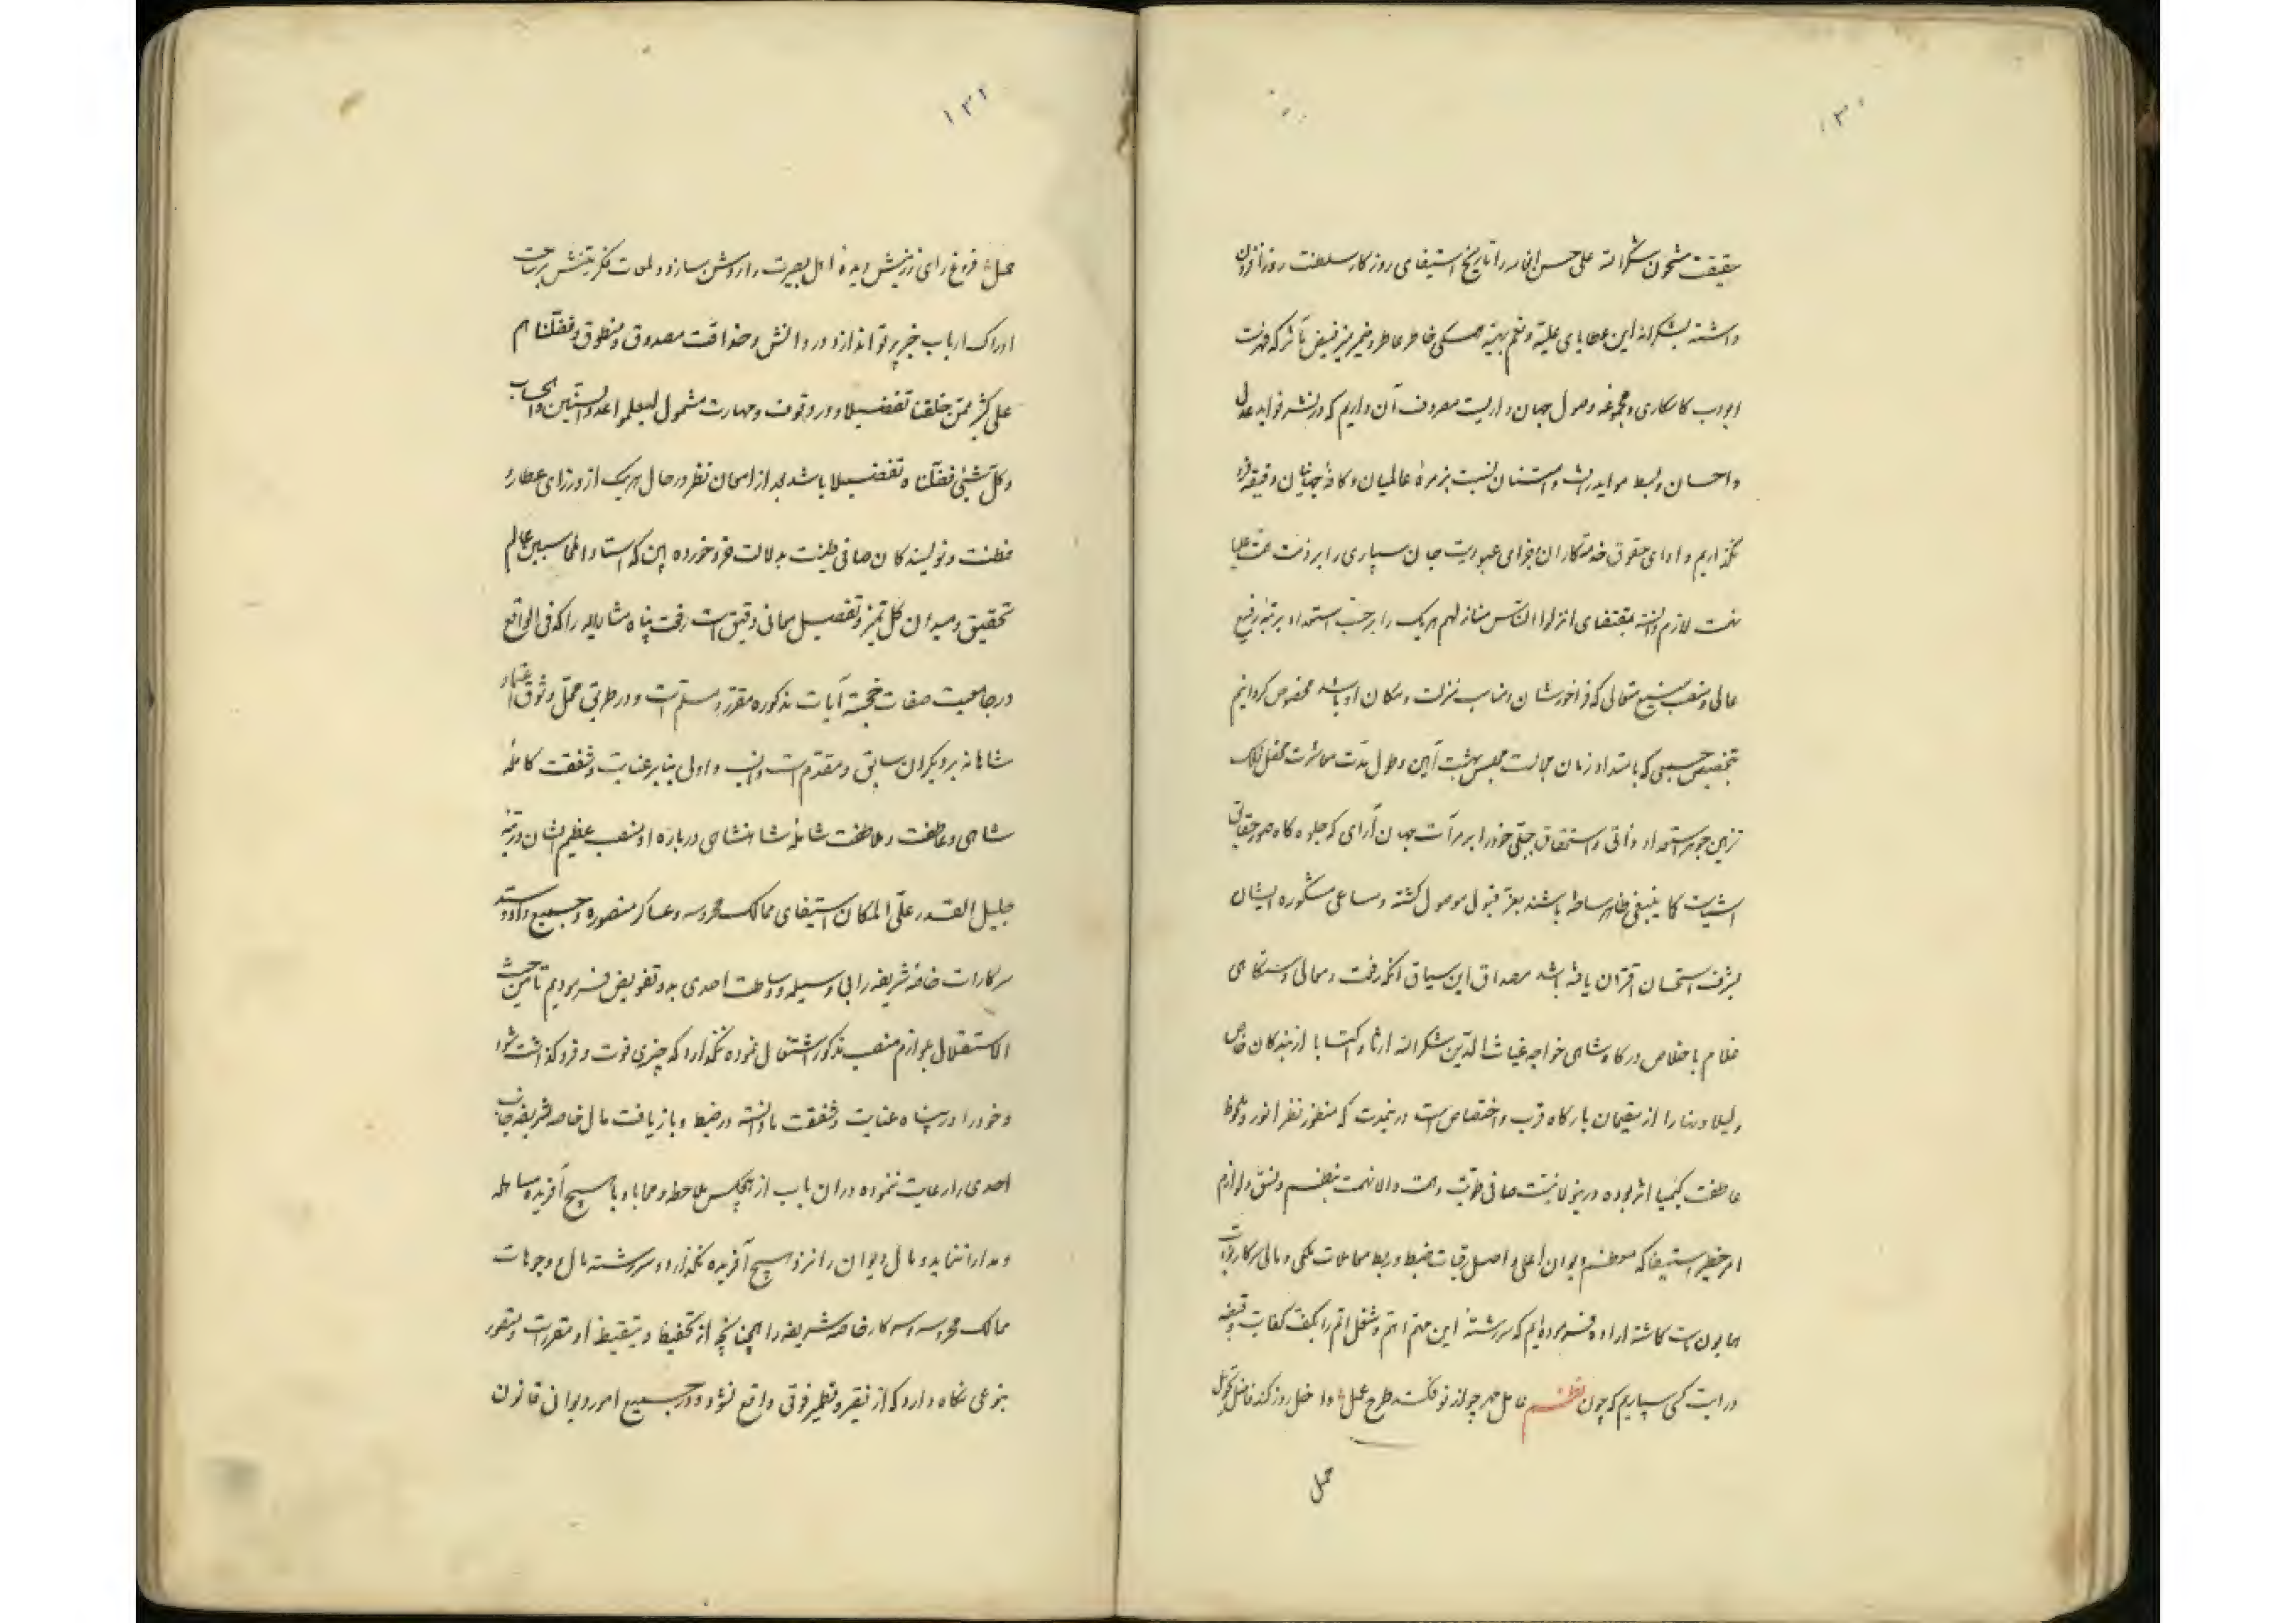 ۱۳۱
حقیقت مشحون شکرالله علی حسن انعامه را تاریخ استیفای روزگار سلطنت روزافزون
داشته بشکرانه این عطایای علیه و نعم بهیه همگی خاطر عاطر و ضمیر منیر فیض تأثر که فهرست
ابواب کامکاری و مجموعه وصول جهان داریست مصروف آن داریم که در نشر فواید عدل
و احسان و بسط مواید و امتنان نسبت بزمرهٔ عالمیان و کافهٔ جهانیان دقیقه فرو
نگذاریم و ادای حقوق خدمتکاران و جزای عبودیت جان سپاری را بر ذمت همت علیا
نهمت لازم دانسته بمقتضای انزلوا الناس منازلهم هریک را برحسب استعداد برتبهٔ رفیع
عالی و منصب منیع متعالی که فراخور شان و مناسب منزلت و مکان او باشد مخصوص گردانیم
بتخصیص جمعی که بامتداد زمان مجالست مجلس بهشت آیین و طول مدت معاشرت محفل فلک
تزیین جوهر استعداد ذاتی و استحقاق جبلی خود را بر مرآت جهان آرای که جلوه گاه صور حقایق
اشیاست کما ینبغی ظاهر ساخته باشند بعز قبول موصول گشته و مساعی مشکوره ایشان
بشرف استحسان اقتران یافته باشد مصداق این سیاق آنکه رفعت و معالی دستگاهی
غلام با اخلاص درگاه شاهی خواجه غیاث الدین شکرالله ارثا و اکتسابا از بندگان خاص
و لیلا و نهارا از مقیمان بارگاه قرب و اختصاص است درینمدت که منظور نظر انور و ملحوظ
عاطفت کیمیا اثر بوده درینولا نیت صافی طویت و همت والا نهمت بنظم و نسق و لوازم
امر خطیر استیفا که معظم دیوان اعلی و اصل رقبات ضبط و ربط معاملات ملکی و مالی سرکار نواب
همایون ماست گماشته اراده فرموده‌ایم که سررشته این مهم اهم و شغل اتم را بکف کفایت و قبضه
درایت کسی سپاریم که چون نظم عامل مهر چو از نو فکند طرح عمل داخل روز کند فاضل تحویل
محمل
۱۳۲
محمل فروغ رای زرینش دیدهٔ اهل بصیرت را روشن سازد و لمعات فکر متینش بر ساحت
ادراک ارباب خبر پرتو اندازد و در دانش و حذاقت مصدوق و منطوق و فضلناهم
علی کثیر ممن خلقنا تفضیلا و در وقوف و مهارت مشمول لیعلموا عدد السنین و الحساب
و کل شیئ فصلناه تفصیلا باشد بعد از امعان نظر در حال هریک از وزرای عطارد
فطنت و نویسندگان صافی طینت بدلالت خرد خورده بین که استاد المحاسبین عالم
تحقیق و میدان کل تمیز و تفصیل معانی دقیق است رفعت پناه مشارالیه را که فی الواقع
در جامعیت صفات خجسته آیات مذکوره مقرر و مسلم است و در طریق محل وثوق و اعتماد
شاهانه بر دیگران سابق و مقدم است و انسب و اولی بنابر عنایت و شفقت کامله
شاهی و عاطفت و ملاطفت شامله شاهنشاهی درباره او منصب عظیم الشان و رتبه
جلیل القدر علی المکان استیفای ممالک محروسه و عساکر منصوره و جمیع داد و ستد
سرکارات خاصه شریفه را بی وسیله و وساطت احدی بدو تفویض فرمودیم تا من حیث
الاستقلال بلوازم منصب مذکور اشتغال نموده نگذارد که چیزی فوت و فروگذاشت شود
و خود را در پناه عنایت و شفقت ما دانسته در ضبط و بازیافت مال خاصه شریفه جانب
احدی را رعایت ننموده در ان باب از هیچکس ملاحظه و محابا و با هیچ آفریده مساهله
و مدارا ننماید و مال دیوان را نزد هیچ آفریده نگذارد و سررشته مال و وجوهات
ممالک محروسه و سرکار خاصه شریفه را همچنانچه از تحفیظ و تیقیظ او مقرر است و متصور
بنوعی نگاه دارد که از نقیر و قطمیر فوتی واقع نشود و در جمیع امور دیوانی قانون